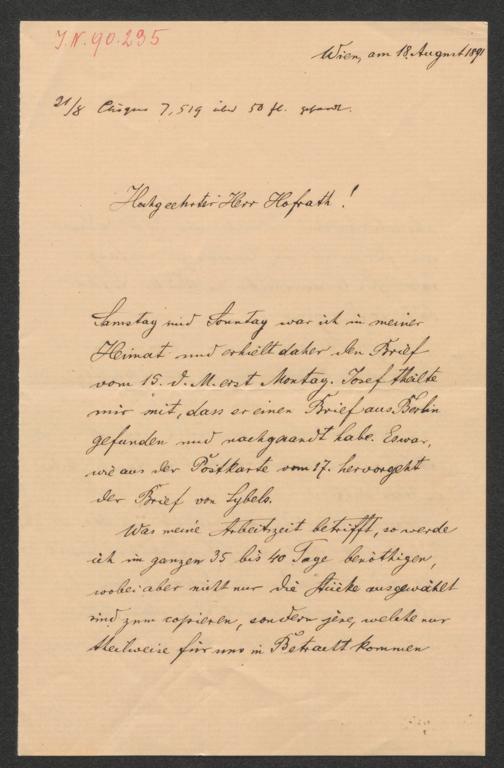 J. N. 90.295
Wien, am 18. August 1891
21/8 7,519 über 50 fl. gesandt.
Hochgeehrter Herr Hofrath!
Samstag und Sonntag war ich in meiner
Heimat und erhielt daher den Brief
vom 15. d. M. erst Montag. Josef theilte
mir mit, dass er einen Brief aus Berlin
gefunden und nachgesandt habe. Es war,
wie aus der Postkarte vom 17. hervorgeht
der Brief von Sybels.
Was meine Arbeitszeit betrifft, so werde
ich im ganzen 35 bis 40 Tage benöthigen,
wobei aber nicht nur die Stücke ausgewählt
sind zum copieren, sondern jene, welche nur
theilweise für uns in Betracht kommen